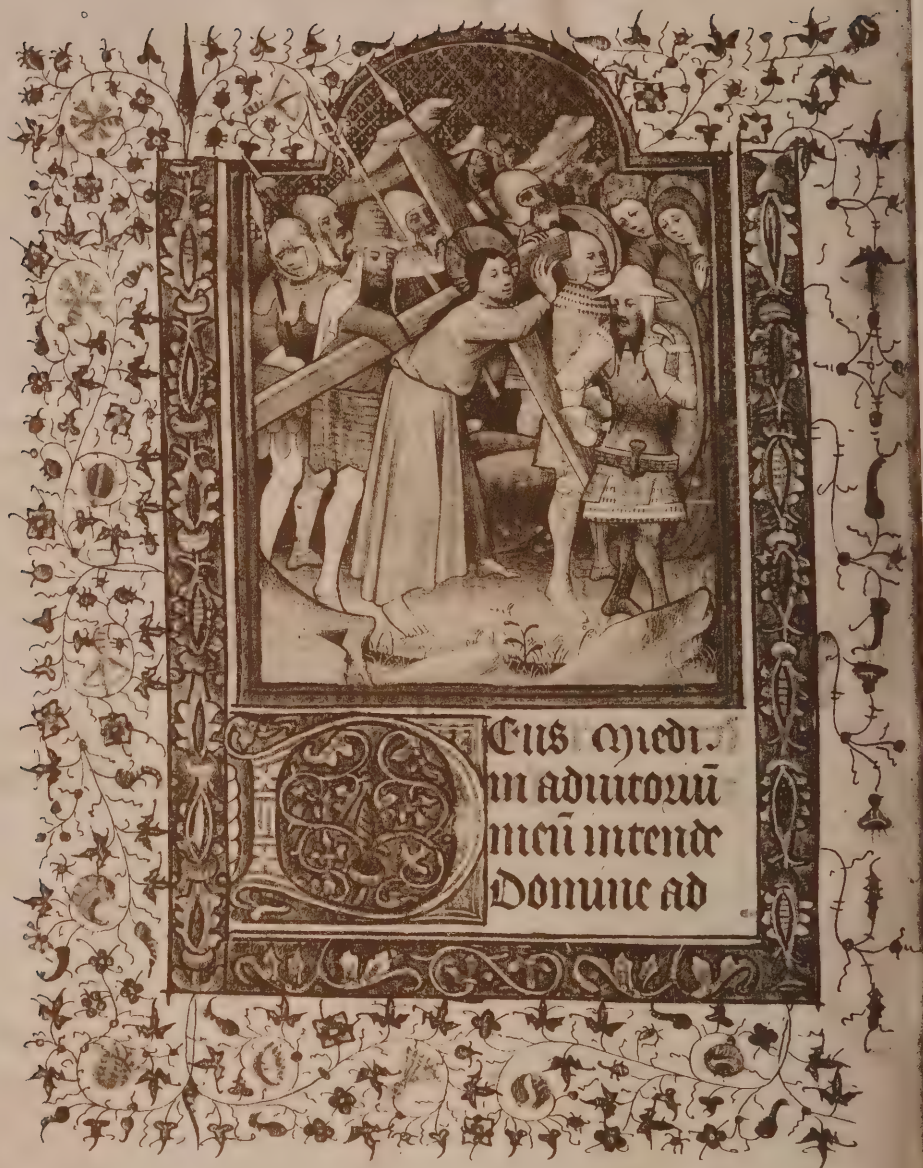 Deus in adi.
in adiutoriū
meū intende
Domine ad